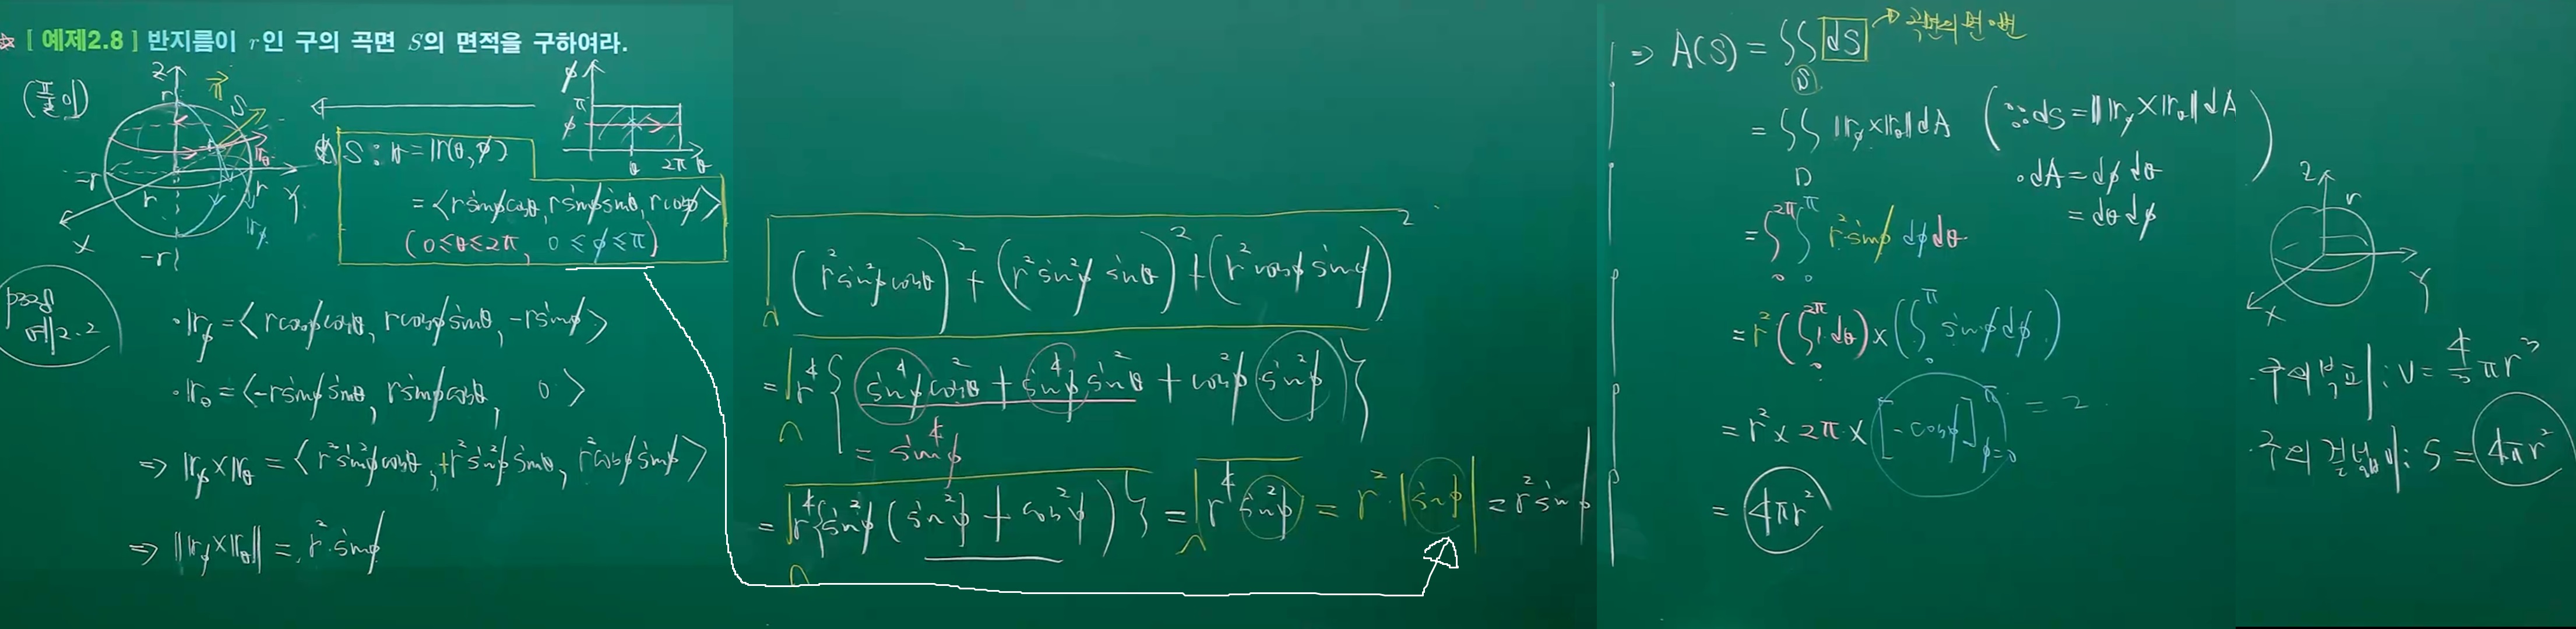 ☆ [ 예제2.8 ] 반지름이 r인 구의 곡면 S의 면적을 구하여라.
(풀이)
Z
r
n
S
-r
r
r
Y
X
-r
r_θ
r_φ
φ
π
φ
θ
2π
θ
S : r = r(θ, φ)
= <r sinφ cosθ, r sinφ sinθ, r cosφ>
(0≤θ≤2π, 0≤φ≤π)
예2.2
· r_φ = <r cosφ cosθ, r cosφ sinθ, -r sinφ>
· r_θ = <-r sinφ sinθ, r sinφ cosθ, 0>
⇒ r_φ × r_θ = <r² sin²φ cosθ, +r² sin²φ sinθ, r² cosφ sinφ>
⇒ ||r_φ × r_θ|| = r² sinφ
√(r² sin²φ cosθ)² + (r² sin²φ sinθ)² + (r² cosφ sinφ)²
= √r⁴{sin⁴φ cos²θ + sin⁴φ sin²θ + cos²φ sin²φ}
= sin⁴φ
= √r⁴{sin²φ (sin²φ + cos²φ)} = √r⁴ sin²φ = r² · |sinφ| = r² sinφ
⇒ A(S) = ∬_S dS → 곡면의 면적
= ∬_D ||r_φ × r_θ|| dA (∵ dS = ||r_φ × r_θ|| dA)
· dA = dφ dθ
= dθ dφ
= ∫₀^2π ∫₀^π r² sinφ dφ dθ
= r² (∫₀^2π 1 dθ) × (∫₀^π sinφ dφ)
= r² × 2π × [-cosφ]^π_φ=0 = 2
= 4πr²
Z
r
Y
X
· 구의 부피 : V = 4/3 πr³
· 구의 겉넓이 : S = 4πr²